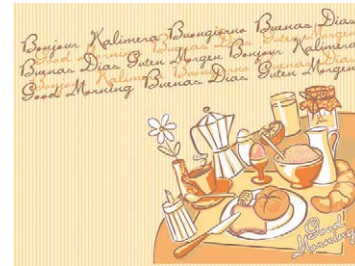 Bonjour Kalimera Buongiorno Buenas Dias
Good morning Buenas Dias Guten Morgen
Buenas Dias Guten Morgen Bonjour Kalimera
Bonjour Kalimera Buongiorno Buenas Dias
Good Morning Buenas Dias Guten Morgen
Good
Morning